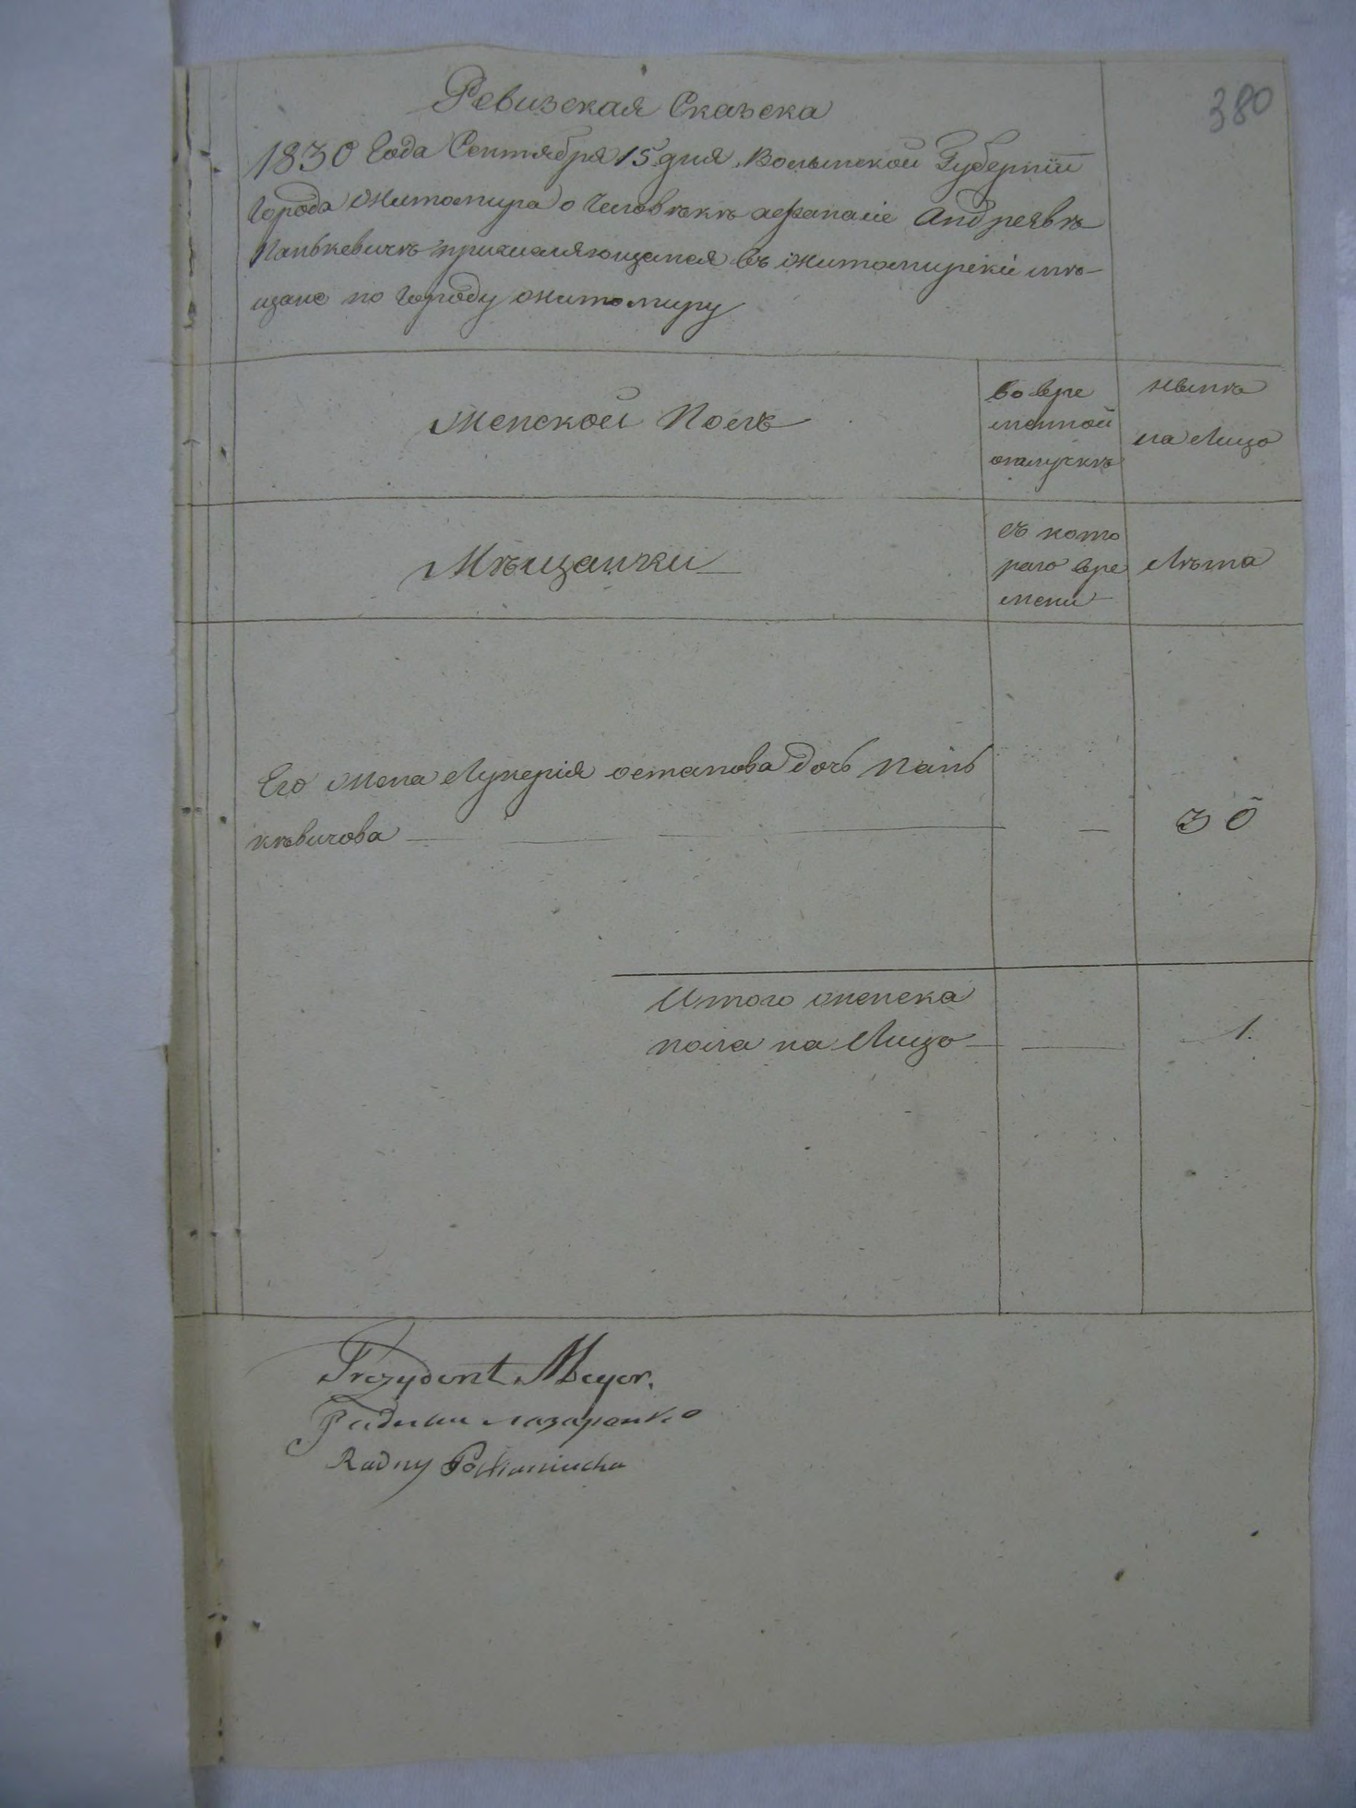 380
Ревизская Сказска
1830 Года Сентября 15 дня Волынской Губерніи
Города Житомира о Человѣкѣ Афанасіе Андреявѣ
Панькевичѣ причисляющемся въ Житомирскіе мѣ-
щане по Городу Житомиру
Женской Полъ
во вре
менной
отлучкѣ
нынѣ
на Лицо
Мѣщанки
съ кото
раго вре
мени
Лѣта
Его жена Лукерія остапова дочь Пань
кѣвичова — — — 30
Итого женска
пола на Лицо — — 1.
Prezydent Meyer.
Радный Назаренко
Radny